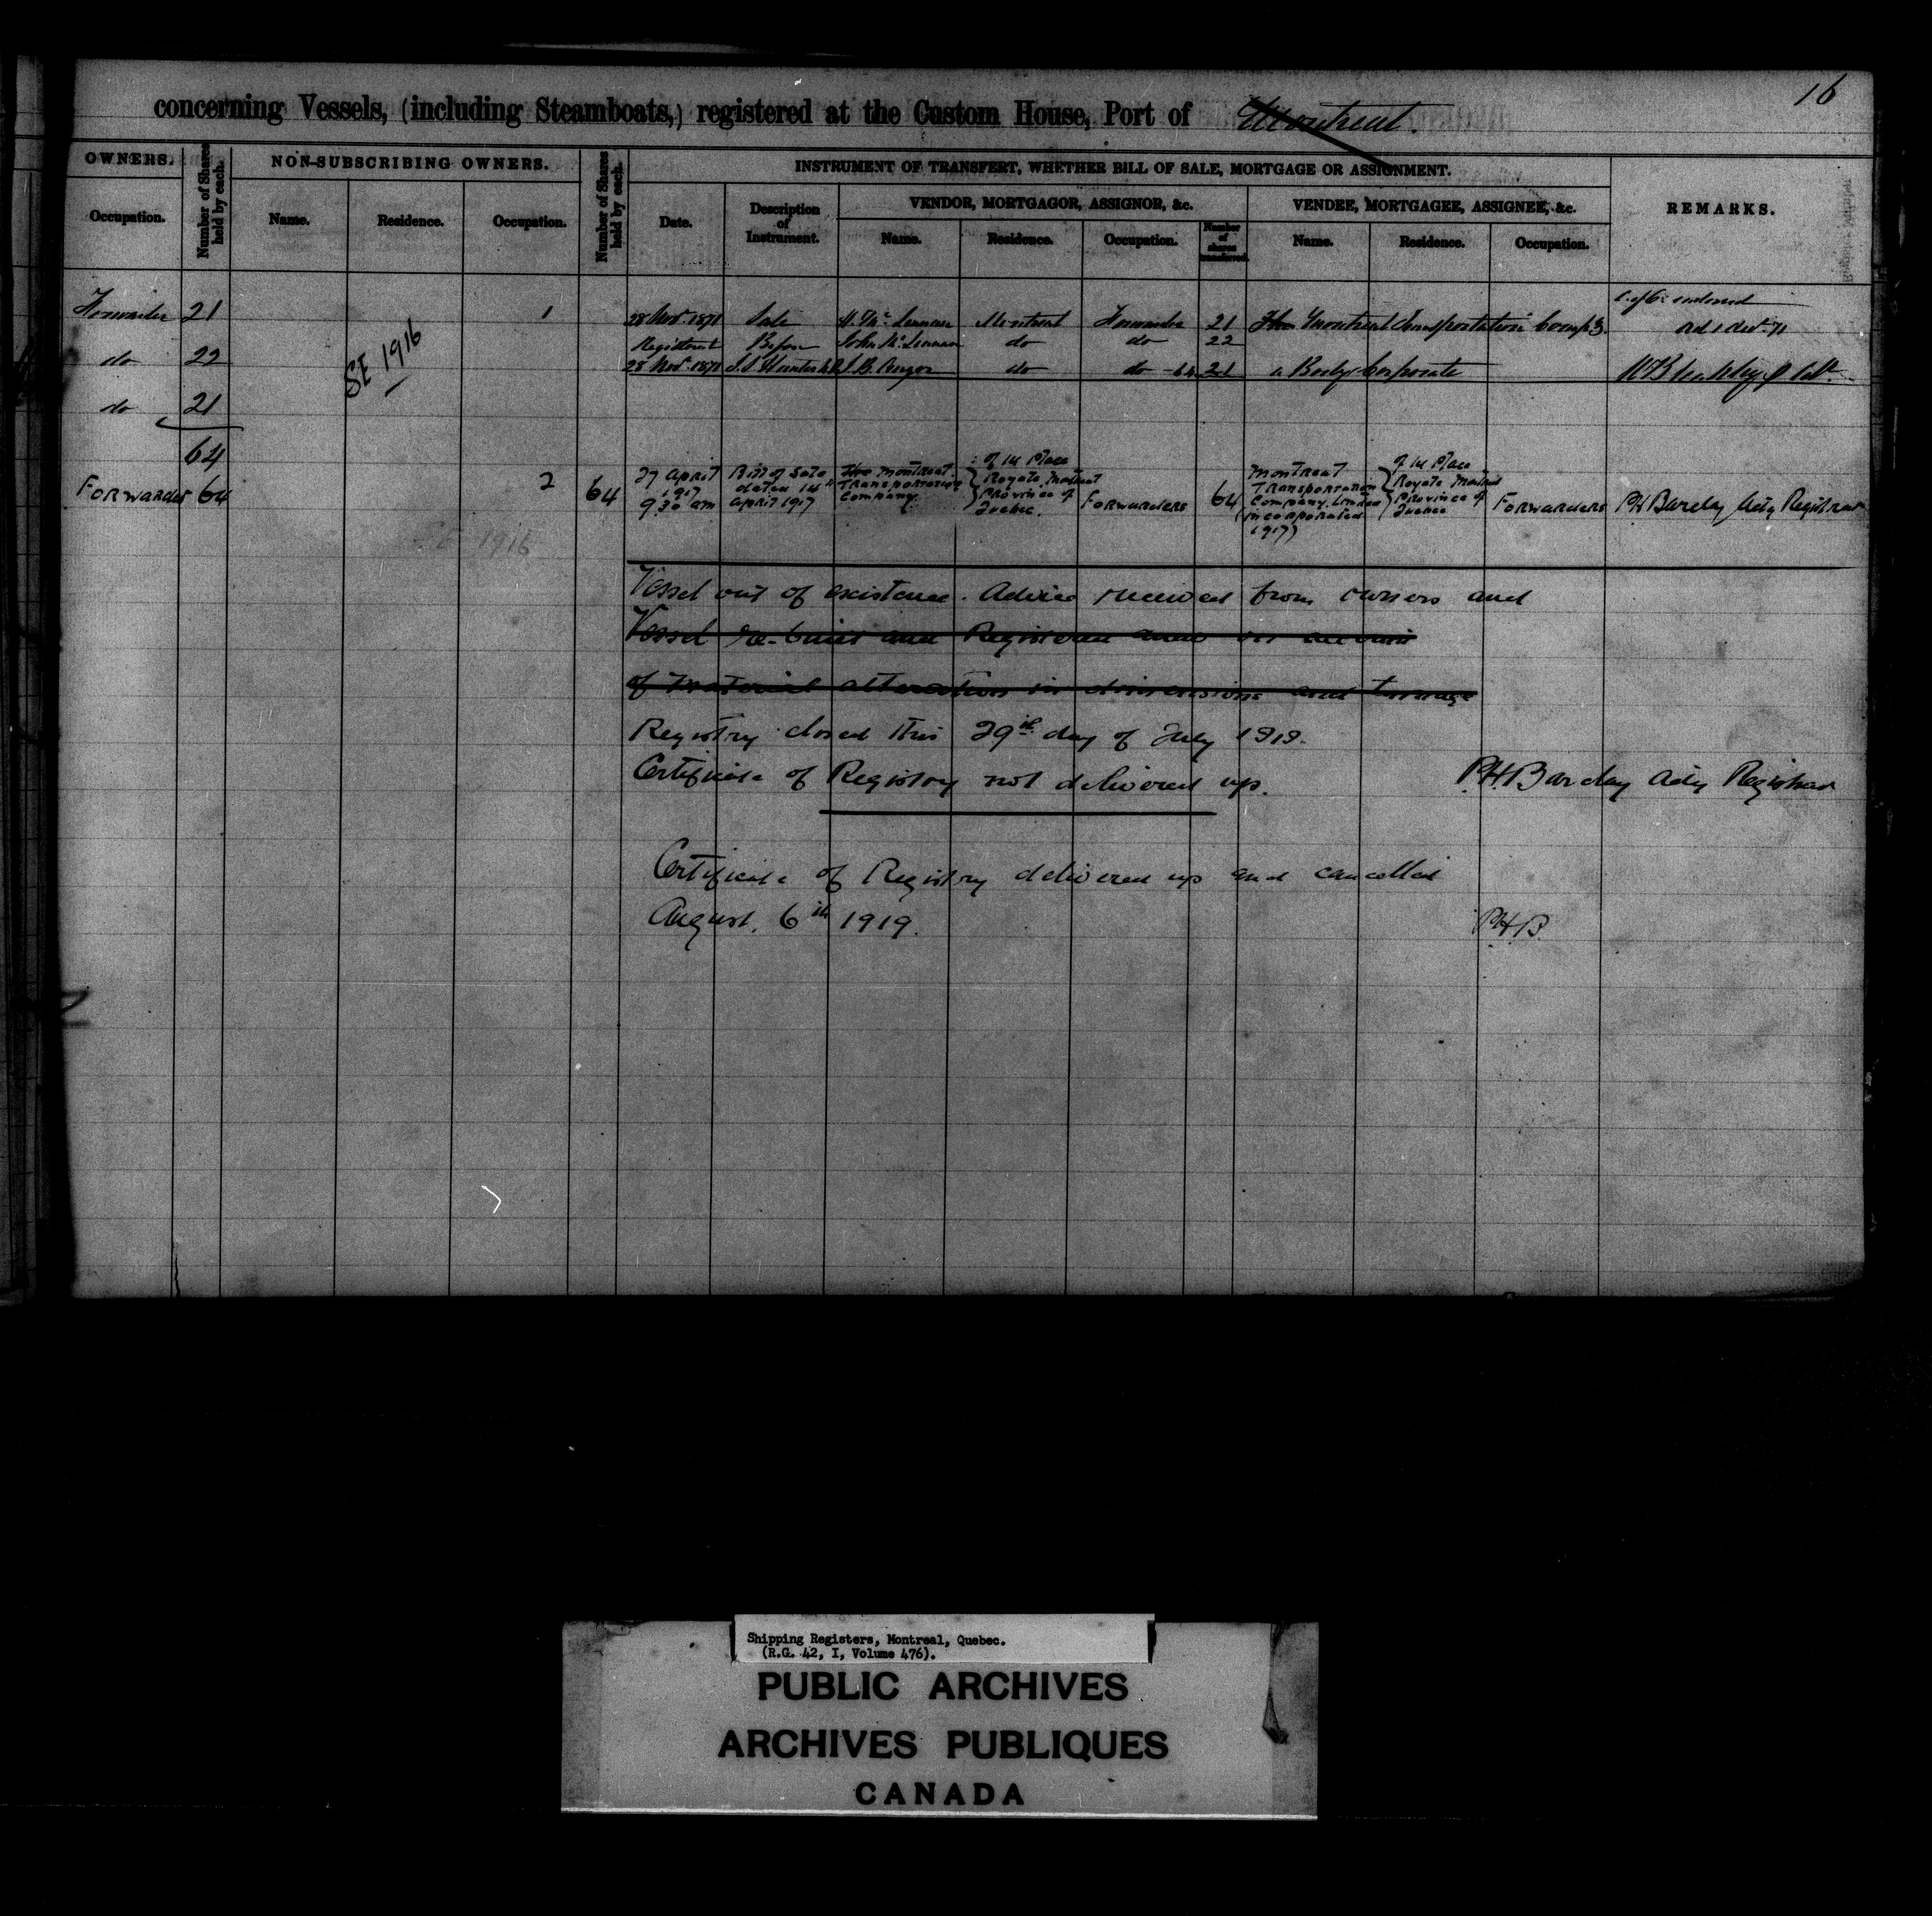 16
concerning Vessels, (including Steamboats,) registered at the Custom House, Port of Montreal.
OWNERS.
Number of Shares held by each.
NON-SUBSCRIBING OWNERS.
Number of Shares held by each.
INSTRUMENT OF TRANSFERT, WHETHER BILL OF SALE, MORTGAGE OR ASSIGNMENT.
REMARKS.
VENDOR, MORTGAGOR, ASSIGNOR, &c.
VENDEE, MORTGAGEE, ASSIGNEE, &c.
Occupation.
Name.
Residence.
Occupation.
Date.
Description of Instrument.
Name.
Residence.
Occupation.
Number of shares transferred.
Name.
Residence.
Occupation.
Forwarder 21 1 28 Nov. 1871 Sale H. McLennan Montreal Forwarder 21 The Montreal Transportation Compy
Registered Before John McLennan do do 22
do 22 28 Nov. 1871 do do 64 21 a Body Corporate
SE 1916
do 21
64
Forwarder 64 2 64
27 April 1917 9 30 am
Bill of Sale dated 14th April 1917
The Montreal Transportation Company
of the Place Royale Montreal Province of Quebec.
Forwarders 64
Montreal Transportation Company Limited (incorporated 1917)
of the Place Royale Montreal Province of Quebec
Forwarders
PH Barclay Actg Registrar
1916
Vessel out of existence. Advice received from owners and
Vessel re-built and Registered anew on account
of material alteration in dimensions and tonnage
Registry closed this 29th day of July 1919.
Certificate of Registry not delivered up. P.H. Barclay Actg Registrar
Certificate of Registry delivered up and cancelled
August. 6th 1919. P.H.B.
Shipping Registers, Montreal, Quebec.
(R.G. 42, I, Volume 476).
PUBLIC ARCHIVES
ARCHIVES PUBLIQUES
CANADA